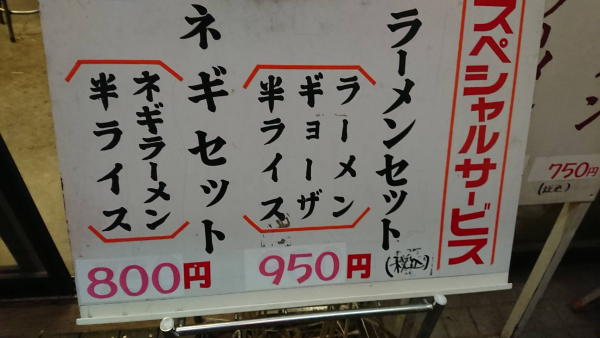 スペシャルサービス
ラーメンセット
(税込)
ラーメン
ギョーザ
半ライス
950円
ネギセット
ネギラーメン
半ライス
800円
750円
(税込)